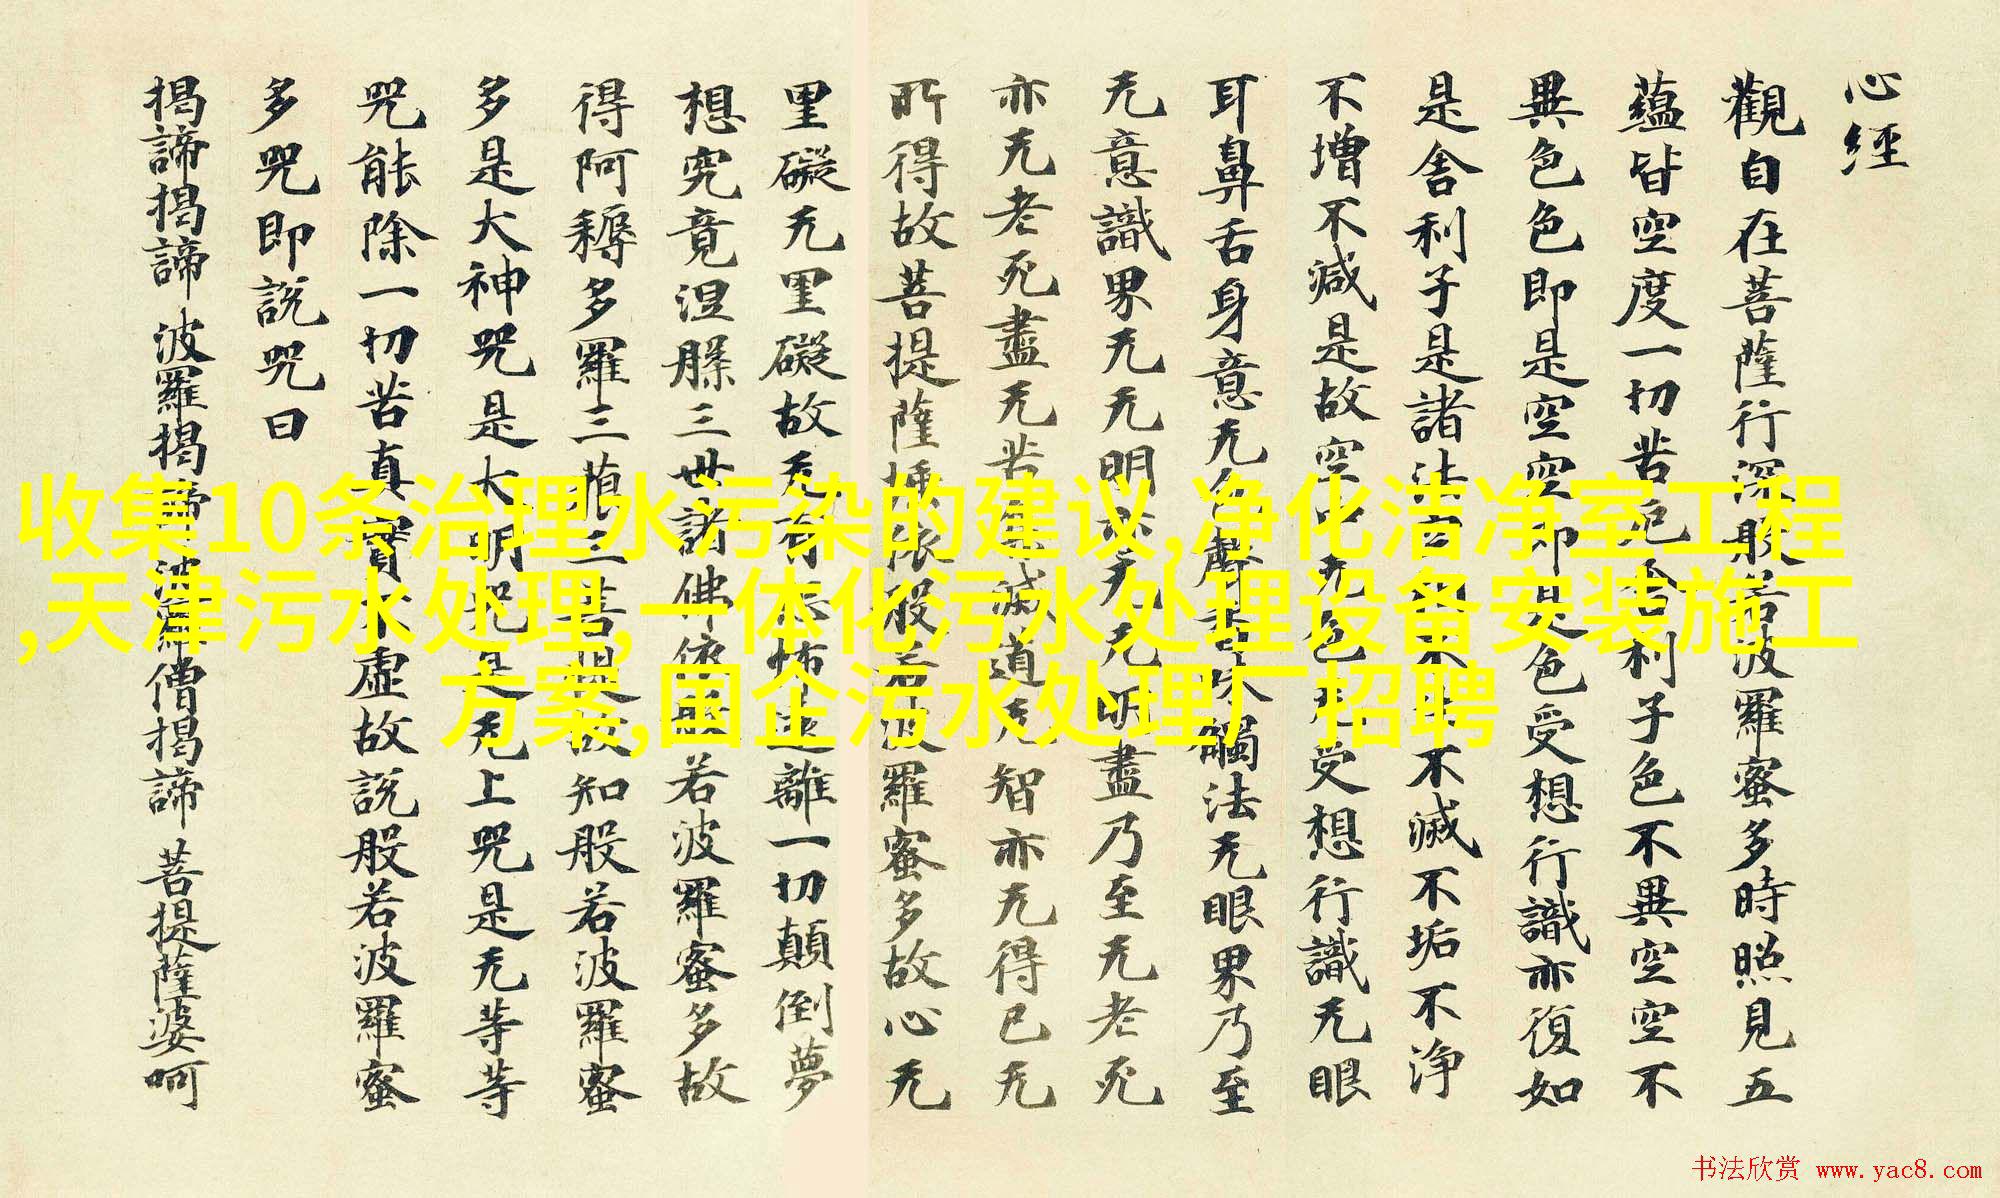 心經
觀自在菩薩行深般若波羅蜜多時照見五
蘊皆空度一切苦厄舍利子色不異空空不
異色色即是空空即是色受想行識亦復如
是舍利子是諸法空相不生不滅不垢不淨
不增不減是故空中无色无受想行識无眼
耳鼻舌身意无色聲香味觸法无眼界乃至
无意識界无无明亦无无明盡乃至无老死
亦无老死盡无苦集滅道无智亦无得已无
所得故菩提薩埵依般若波羅蜜多故心无
罣礙无罣礙故无有恐怖遠離一切顛倒夢
想究竟涅槃三世諸佛依般若波羅蜜多故
得阿耨多羅三藐三菩提故知般若波羅蜜
多是大神咒是大明咒是无上咒是无等等
咒能除一切苦真實不虛故說般若波羅蜜
多咒即說咒曰
揭諦揭諦 波羅揭諦 波羅僧揭諦 菩提薩婆呵
收集10条治理水污染的建议,净化洁净室工程
,天津污水处理,一体化污水处理设备安装施工
方案,国企污水处理厂招聘
书法欣赏 www.yac8.com